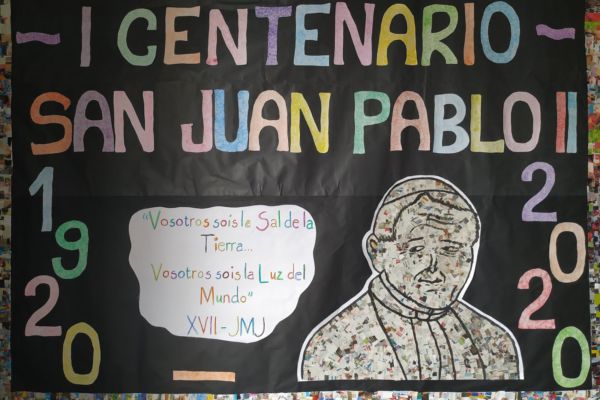 ~ I CENTENARIO ~
SAN JUAN PABLO II
1920
"Vosotros sois la Sal de la
Tierra...
Vosotros sois la Luz del
Mundo"
XVII - JMJ
–
2020